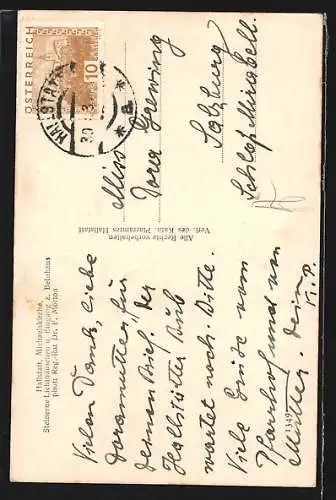 ÖSTERREICH
10
HALLSTATT
30
Miss
Dora Greening
Salzburg
Schloß Mirabell.
Vielen Dank, liebe
Doramutter, für
deinen Brief. Der
Hallstätter Bub
wartet noch. Bitte.
Viele Grüße vom
Pfarrhof und von
Mutter. Dein
Hallstatt, Michaelskirche,
Steinerne Lichtsäulchen u. Eingang z. Beinhaus
phot. Reg.-Rat Dr. F. Morton
Alle Rechte vorbehalten
Verl. des Kath. Pfarramtes Hallstatt
1349